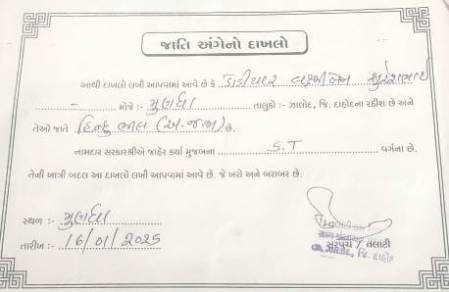 જાતિ અંગેનો દાખલો
આથી દાખલો લખી આપવામાં આવે છે કે ડાંડીયાર લક્ષ્મીબેન સુરેશભાઈ
- મોજે :- મુણધા તાલુકો :- ઝાલોદ, જિ. દાહોદના રહીશ છે અને
તેઓ જાતે હિન્દુ ભીલ (અ.જ.જા) છે.
નામદાર સરકારશ્રીએ જાહેર કર્યા મુજબના S.T વર્ગના છે.
તેની ખાત્રી બદલ આ દાખલો લખી આપવામાં આવે છે. જે ખરો અને બરાબર છે.
સ્થળ :- મુણધા
તારીખ :- 16/01/2025
સરપંચ / તલાટી
તા. ઝાલોદ, જિ. દાહોદ